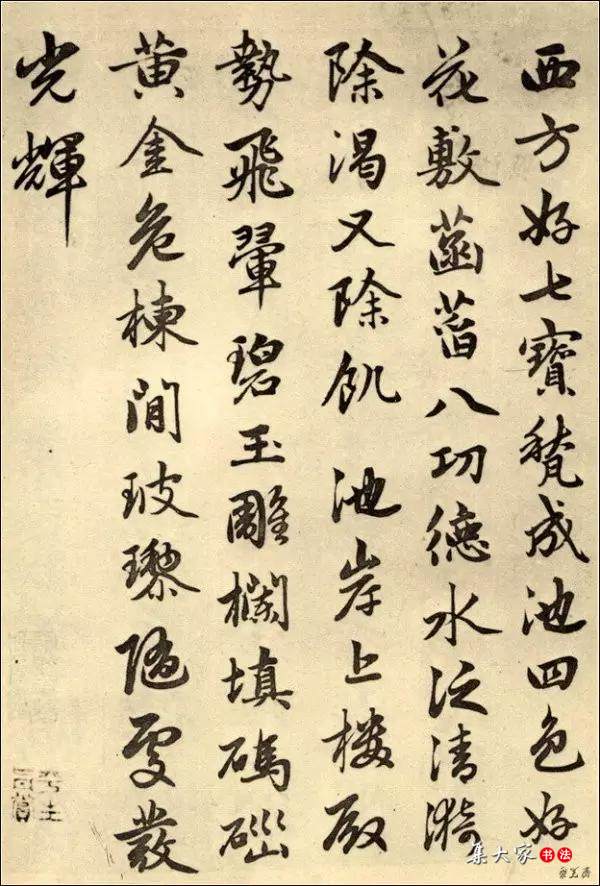 西方好七寶甃成池四色好
花敷菡萏八功德水泛清漪
除渴又除飢 池岸上楼殿
勢飛翬碧玉雕欄填碼碯
黄金危棟間玻瓈隨處發
光輝
集大家书法